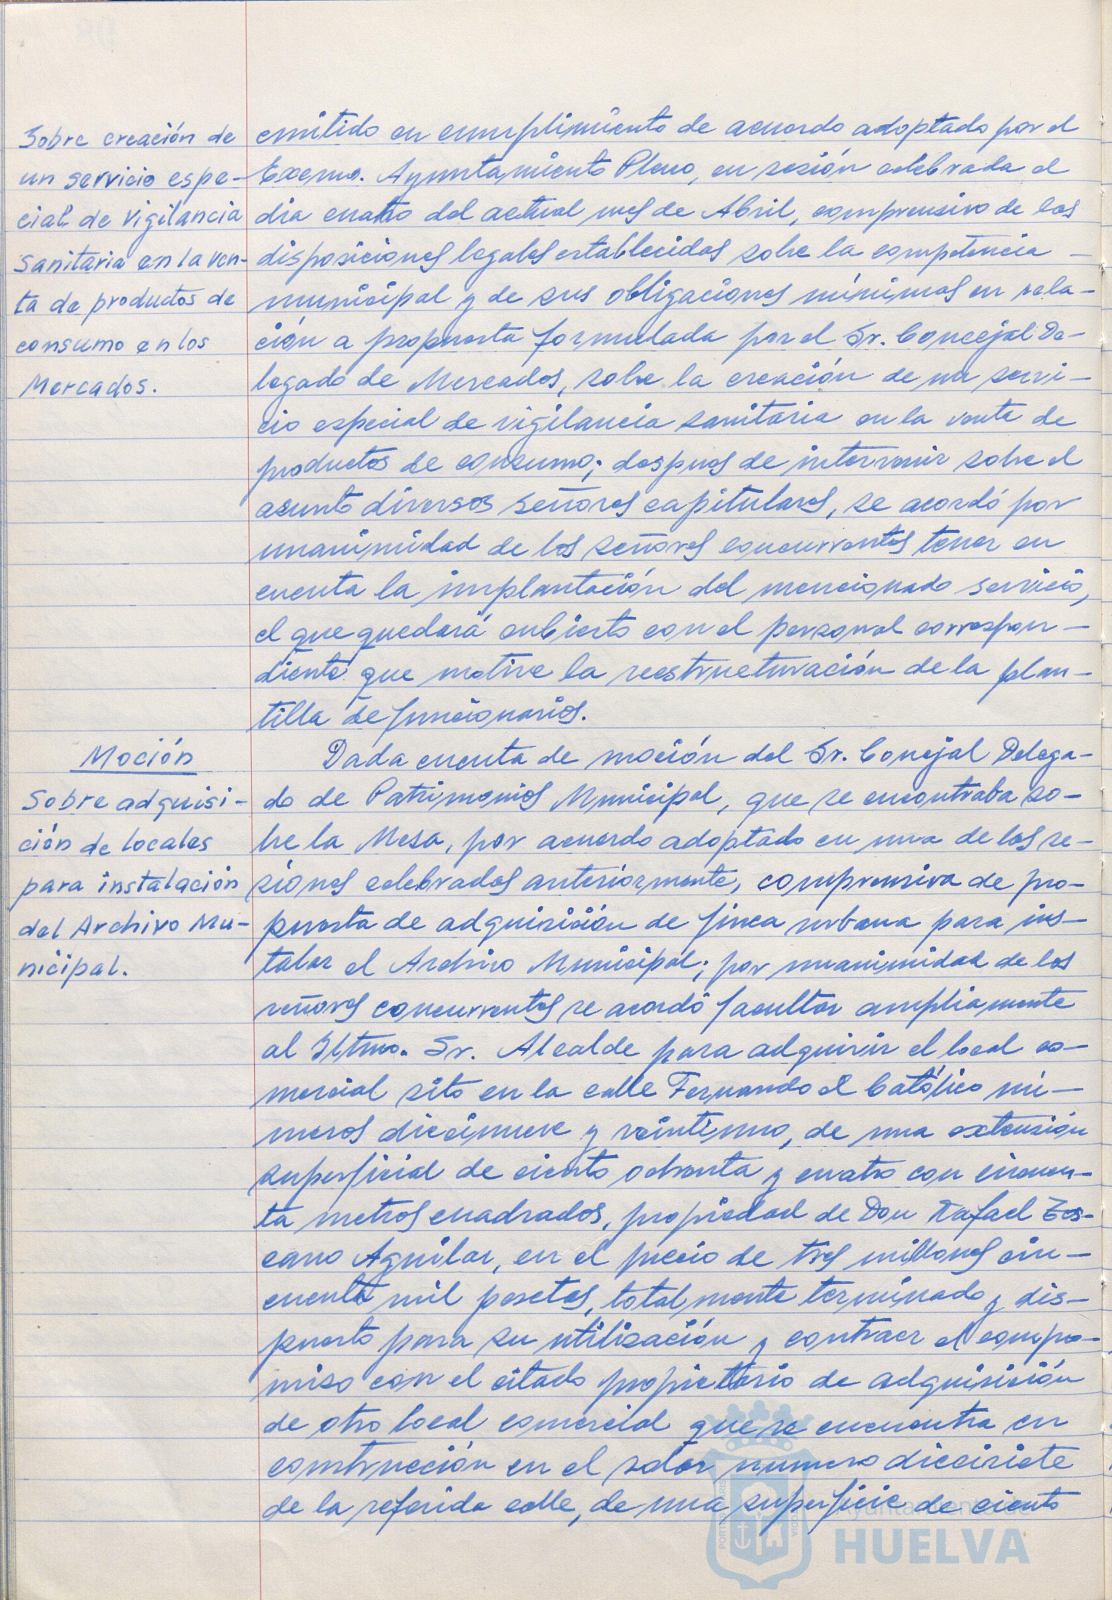 Sobre creación de
un servicio espe-
cial de vigilancia
sanitaria en la ven-
ta de productos de
consumo en los
Mercados.
emitido en cumplimiento de acuerdo adoptado por el
Excmo. Ayuntamiento Pleno, en sesión celebrada el
dia cuatro del actual mes de Abril, comprensivo de las
disposiciones legales establecidas sobre la competencia -
municipal y de sus obligaciones mínimas en rela-
ción a propuesta formulada por el Sr. Concejal De-
legado de Mercados, sobre la creación de un servi-
cio especial de vigilancia sanitaria en la venta de
productos de consumo; despues de intervenir sobre el
asunto diversos señores capitulares, se acordó por
unanimidad de los señores concurrentes tener en
cuenta la implantación del mencionado servicio,
el que quedará cubierto con el personal correspon-
diente que motive la reestructuración de la plan-
tilla de funcionarios.
Moción
Sobre adquisi-
ción de locales
para instalación
del Archivo Mu-
nicipal.
Dada cuenta de moción del Sr. Concejal Delega-
do de Patrimonios Municipal, que se encontraba so-
bre la Mesa, por acuerdo adoptado en una de las se-
siones celebradas anteriormente, comprensiva de pro-
puesta de adquisición de finca urbana para ins-
talar el Archivo Municipal; por unanimidad de los
señores concurrentes se acordó facultar ampliamente
al Iltmo. Sr. Alcalde para adquirir el local co-
mercial sito en la calle Fernando el Católico nú-
meros diecinueve y veintiuno, de una extensión
superficial de ciento ochenta y cuatro con cincuen-
ta metros cuadrados, propiedad de Don Rafael Es-
cano Aguilar, en el precio de tres millones cin-
cuenta mil pesetas, totalmente terminado y dis-
puesto para su utilización y contraer el compro-
miso con el citado propietario de adquisición
de otro local comercial que se encuentra en
construcción en el solar numero diecisiete
de la referida calle, de una superficie de ciento
Ayuntamiento de
HUELVA